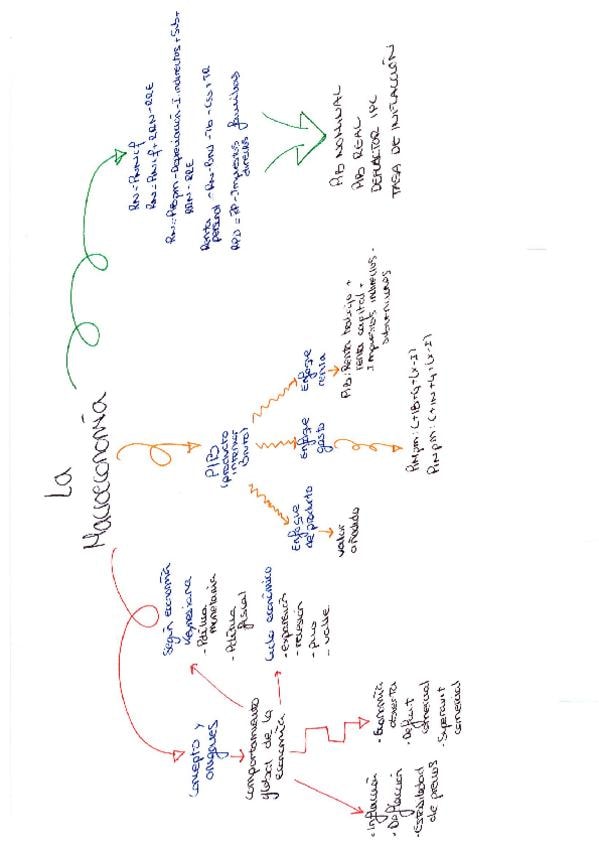 La
Macroeconomía
Concepto y
orígenes
comportamiento
global de la
economía
Según economía
Keynesiana
- Política
monetaria
- Política
fiscal
Ciclo económico
- expansión
- recesión
- pico
- valle
- Inflacción
- Deflacción
- Estabilidad
de precios
- Economía
abierta
- Deficit
comercial
- Superavit
comercial
PIB
(producto
interior
bruto)
Enfoque
de producto
valor
añadido
Enfoque
gasto
PIBpm: C+IB+G+(X-I)
PINpm: C+IN+G+(X-I)
Enfoque
renta
PIB: Renta trabajo +
renta capital +
Impuestos indirectos -
subvenciones
RN = PNNcf
RN = PINcf + RRN - RRE
RN = PIBpm - Depreciación - I. indirectos + Sub +
RRN - RRE
Renta
personal
RPD = RP - Impuestos familias
directos
PIB NOMINAL
PIB REAL
DEFLACTOR IPC
TASA DE INFLACCIÓN